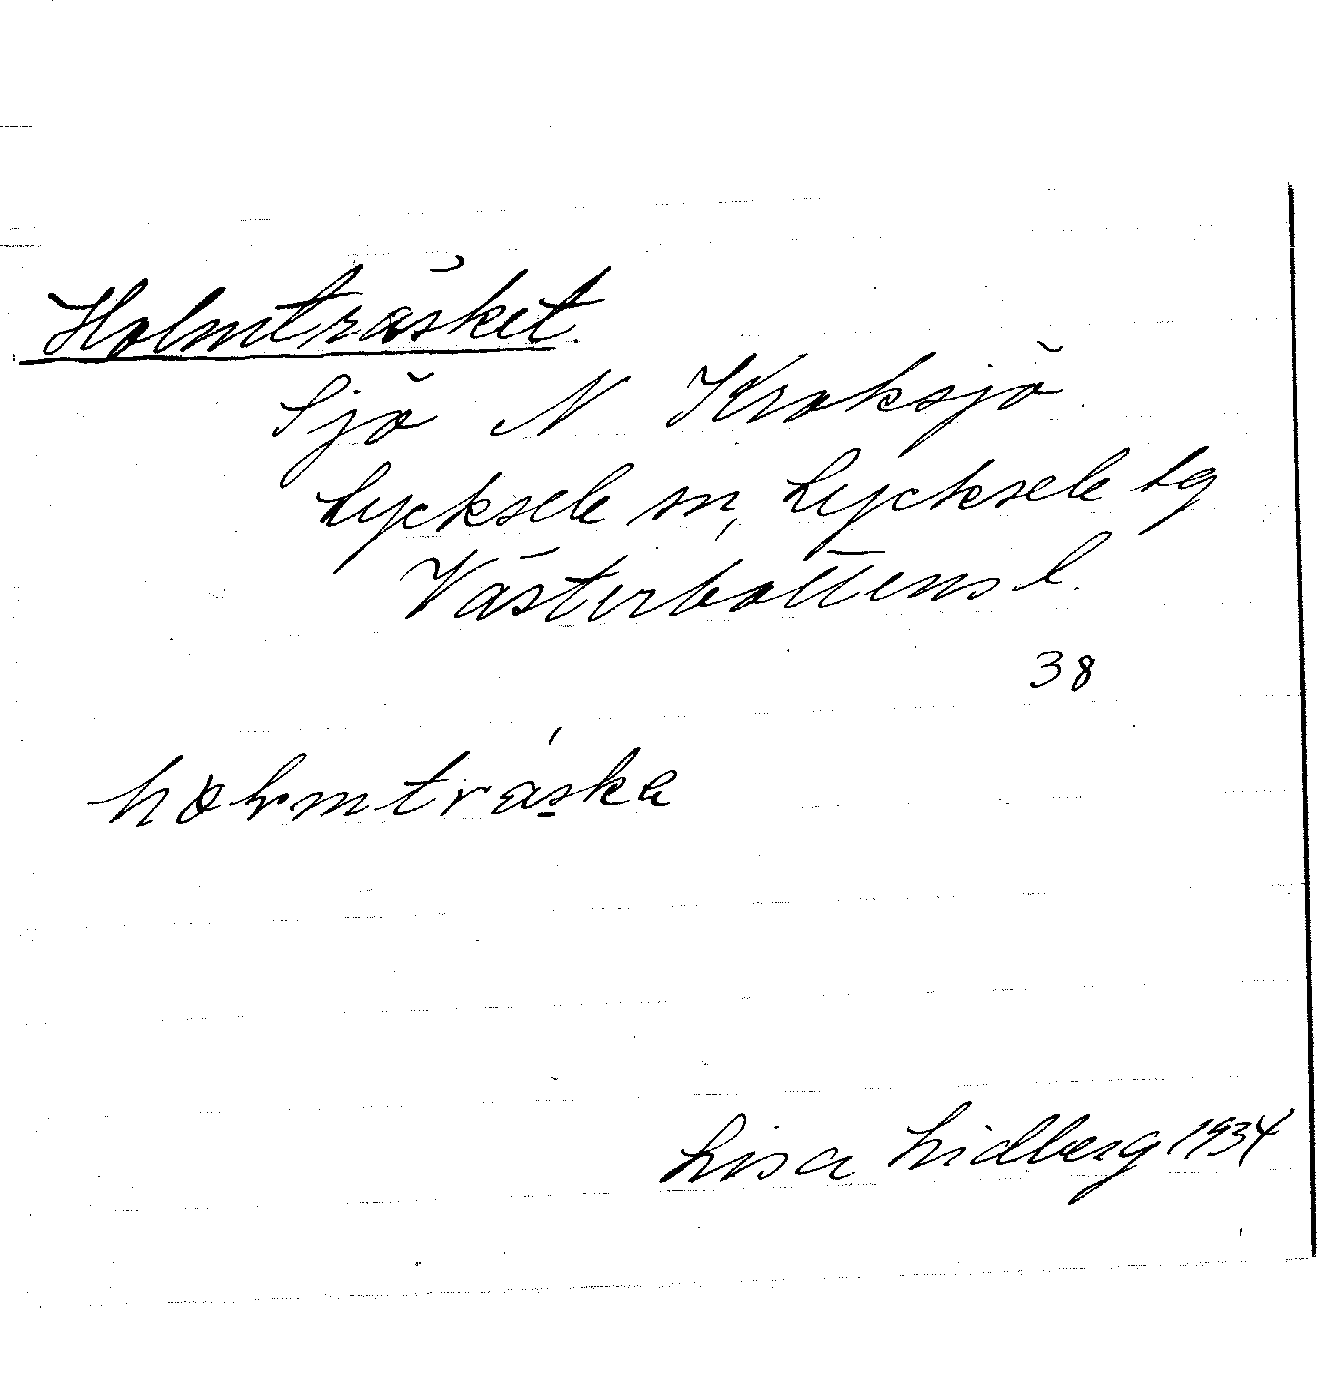 Holmträsket.
Sjö N Kroksjö
Lycksele sn, Lycksele lg
Västerbottens l.
38
Lisa Lidberg 1934